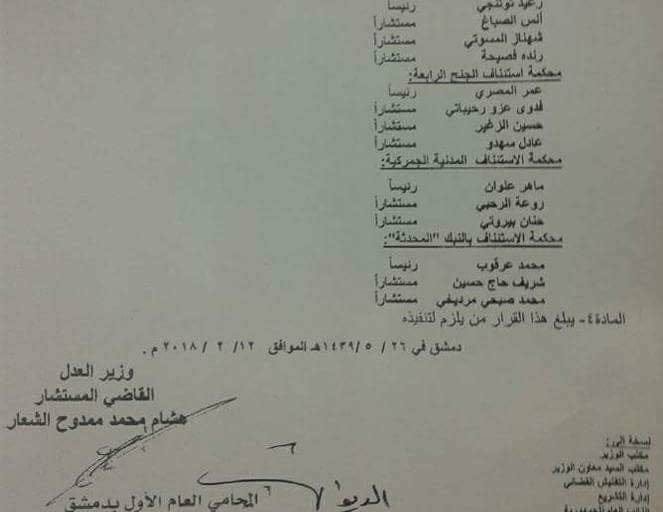 رغيد توتنجي رئيساً
أنس الصباغ مستشاراً
شهناز المسوتي مستشاراً
رنده فصيحة مستشاراً
محكمة استئناف الجنح الرابعة:
عمر المصري رئيساً
فدوى عزو رحيباتي مستشاراً
حسين الزغير مستشاراً
عادل سهدو مستشاراً
محكمة الاستئناف المدنية الجمركية:
ماهر علوان رئيساً
روعة الرحبي مستشاراً
حنان بيروتي مستشاراً
محكمة الاستئناف بالنبك "المحدثة":
محمد عرقوب رئيساً
شريف حاج حسين مستشاراً
محمد صبحي مرديغي مستشاراً
المادة٤- يبلغ هذا القرار من يلزم لتنفيذه
دمشق في ٢٦ / ٥ /١٤٣٩هـ الموافق ١٢/ ٢ / ٢٠١٨ م .
وزير العدل
القاضي المستشار
هشام محمد ممدوح الشعار
نسخة إلى:
مكتب الوزير
مكتب السيد معاون الوزير
إدارة التفتيش القضائي
إدارة التشريع
الديوان
المحامي العام الأول بدمشق